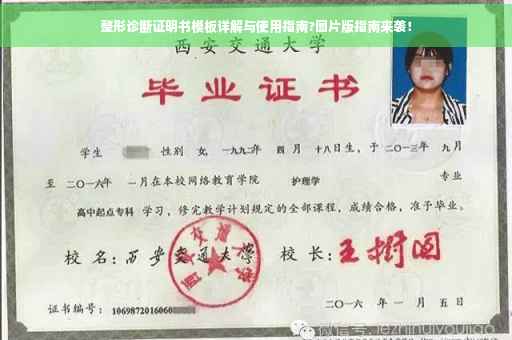 整形诊断证明书模板详解与使用指南?图片版指南来袭!
西安交通大学
毕业证书
学生 性别 女, 一九九二年 四 月 十八日生, 于 二〇一三年 九月
至 二〇一六年 一月在本校网络教育学院 护理学 专业
高中起点专科 学习, 修完教学计划规定的全部课程, 成绩合格, 准予毕业。
校 名: 西安交通大学 校 长: 王树国
西安交通大学
证书编号: 1069872016060
二〇一六 年 一 月 五 日
微信号: jezhihuiyoujiao